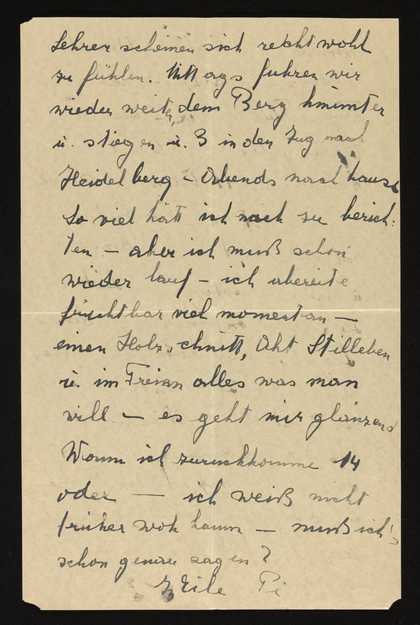 Lehrer scheinen sich recht wohl
zu fühlen. Mittags fuhren wir
wieder weit, dem Berg hinunter
u. stiegen u. 3 in den Zug nach
Heidelberg – Abends nach hause
So viel hätt ich noch zu berich-
ten – aber ich muß schon
wieder lauf – ich arbeite
furchtbar viel momentan –
einen Holzschnitt, Akt Stilleben
u. im Freien alles was man
will – es geht mir glänzend
Wann ich zurückkomme 14
oder — ich weiß nicht
früher woh kaum – muß ich's
schon genau sagen?
Eile Pi